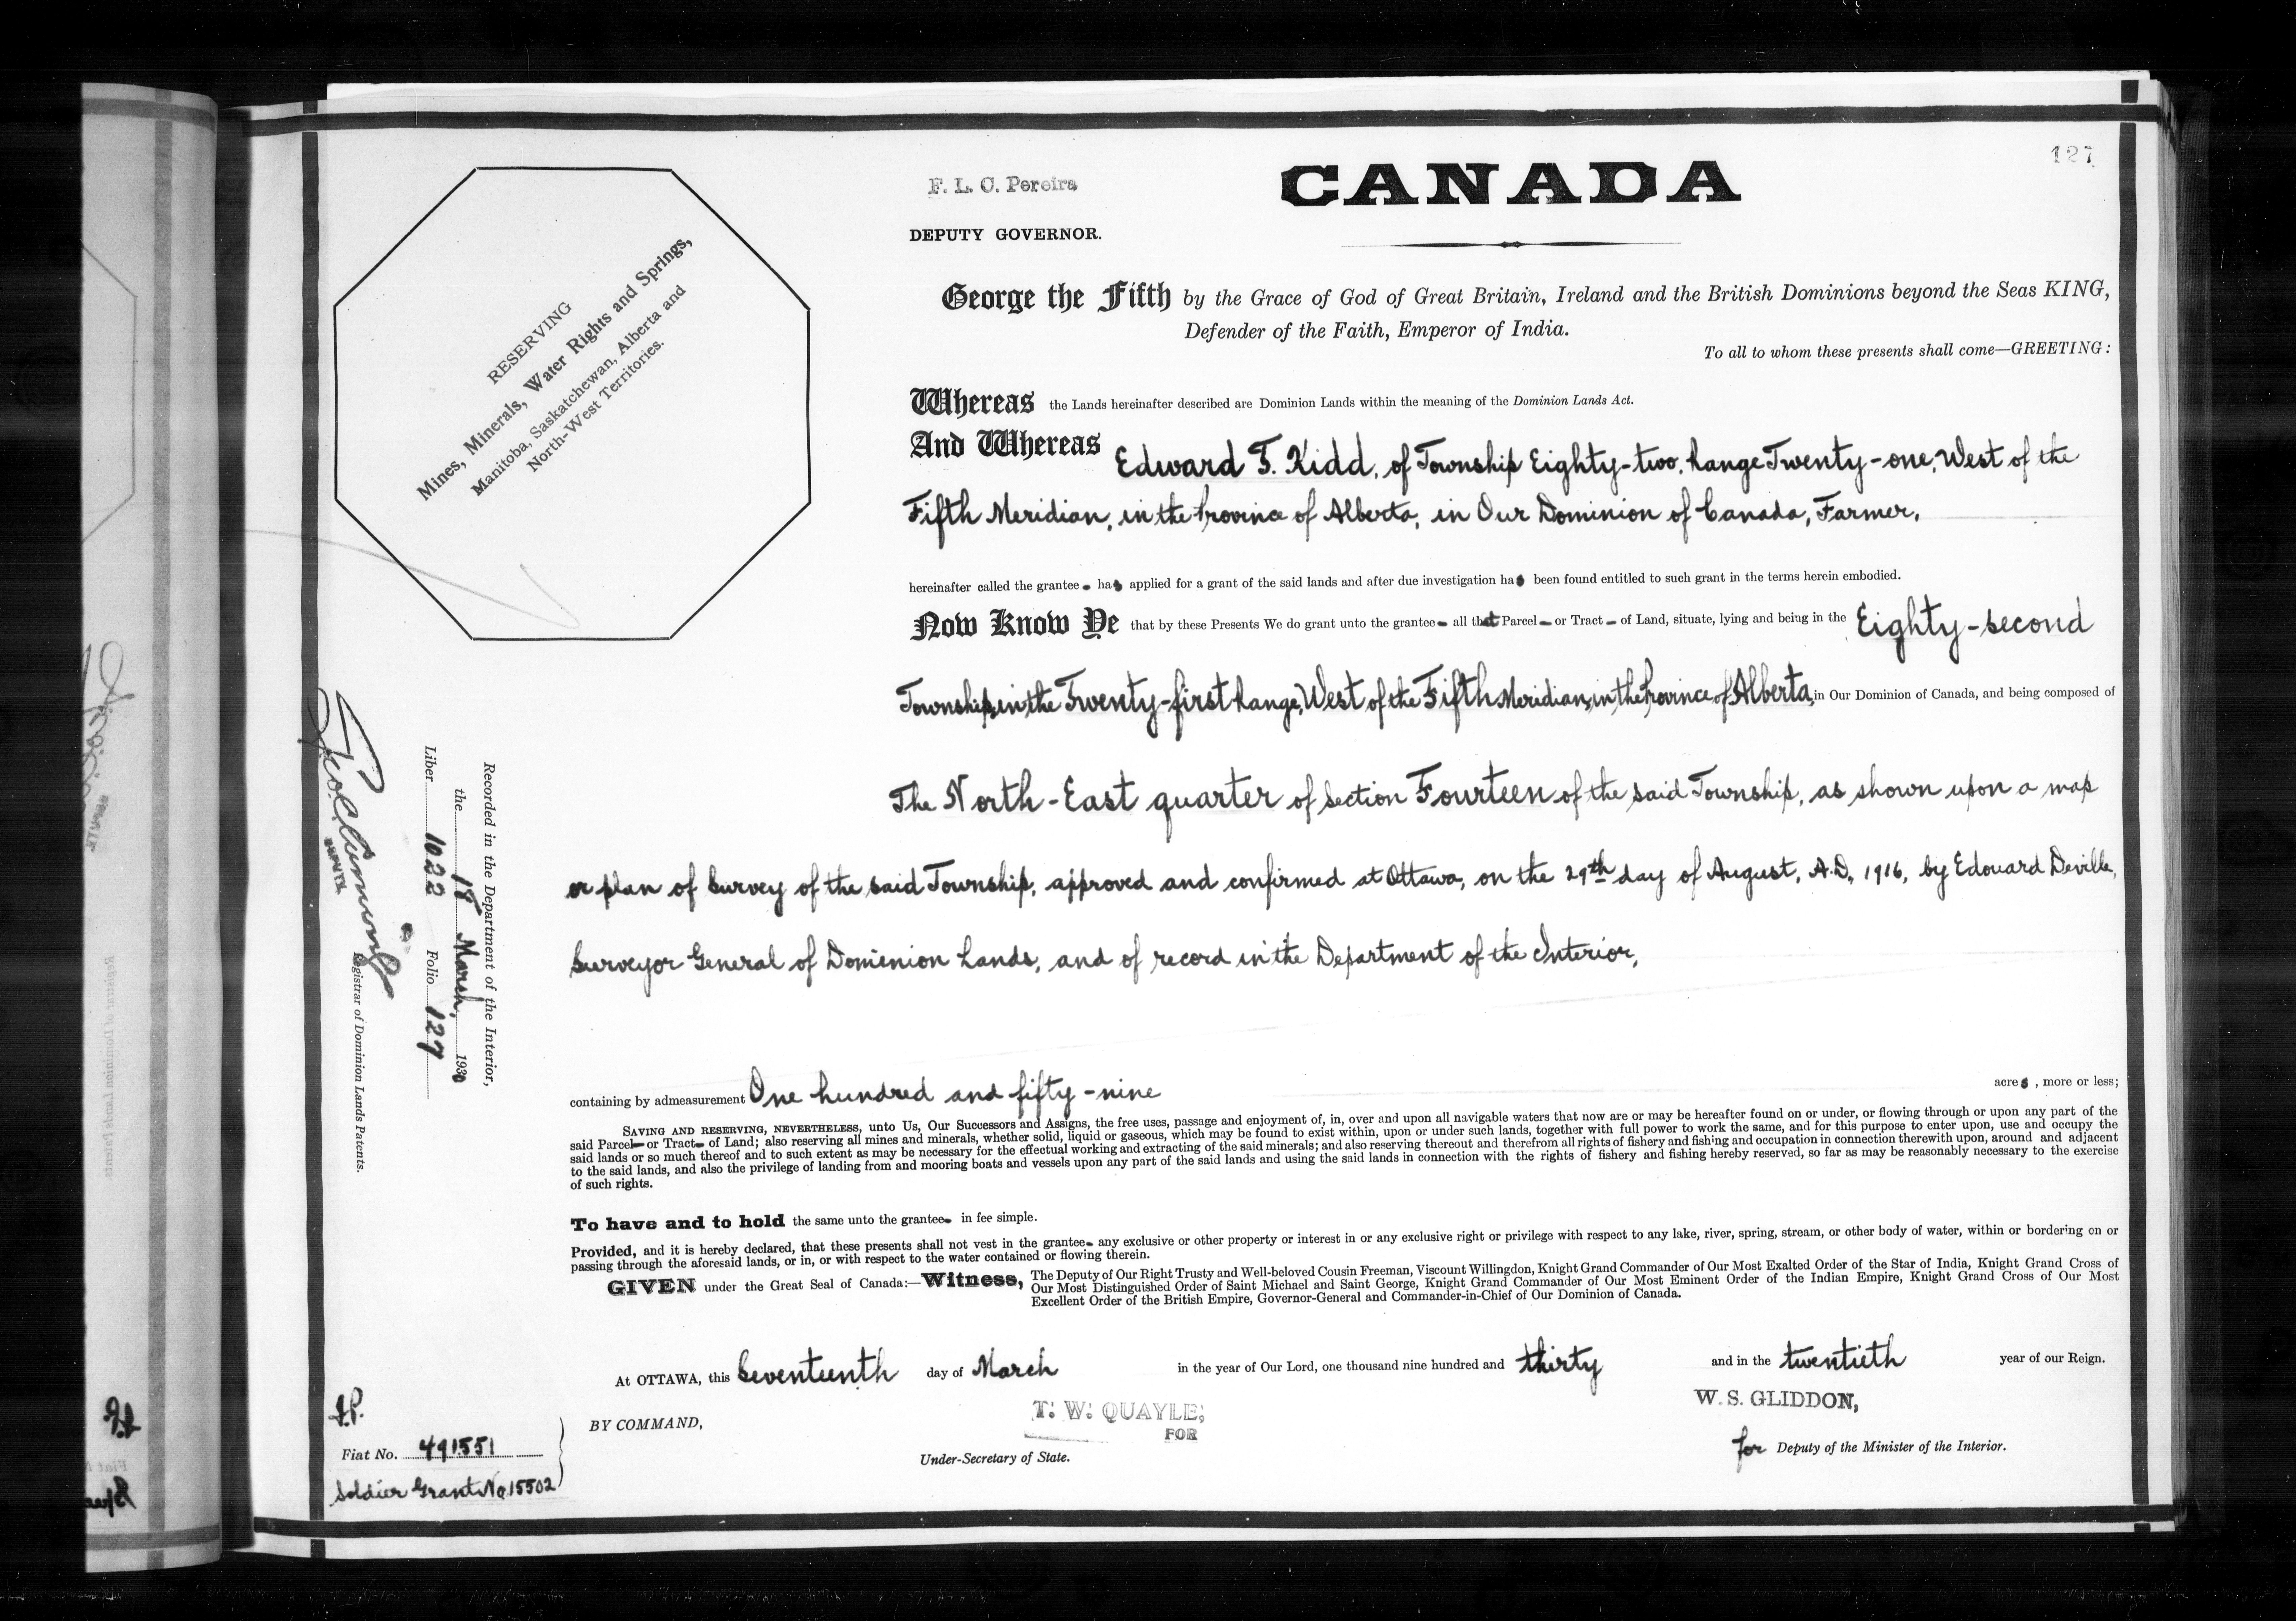 127
F. L. C. Pereira
CANADA
DEPUTY GOVERNOR.
RESERVING
Mines, Minerals, Water Rights and Springs,
Manitoba, Saskatchewan, Alberta and
North-West Territories.
George the Fifth by the Grace of God of Great Britain, Ireland and the British Dominions beyond the Seas KING,
Defender of the Faith, Emperor of India.
To all to whom these presents shall come—GREETING:
Whereas the Lands hereinafter described are Dominion Lands within the meaning of the Dominion Lands Act.
And Whereas Edward F. Kidd, of Township Eighty-two, Range Twenty-one, West of the
Fifth Meridian, in the Province of Alberta, in Our Dominion of Canada, Farmer,
hereinafter called the grantee has applied for a grant of the said lands and after due investigation has been found entitled to such grant in the terms herein embodied.
Now Know Ye that by these Presents We do grant unto the grantee all that Parcel or Tract of Land, situate, lying and being in the Eighty-second
Township, in the Twenty-first Range, West of the Fifth Meridian, in the Province of Alberta, in Our Dominion of Canada, and being composed of
The North-East quarter of Section Fourteen of the said Township, as shown upon a map
or plan of Survey of the said Township, approved and confirmed at Ottawa, on the 29th day of August, A.D. 1916, by Edouard Deville,
Surveyor General of Dominion Lands, and of record in the Department of the Interior,
Recorded in the Department of the Interior,
the 18 March, 1930
Liber 1022 Folio 127
DEPUTY
Registrar of Dominion Lands Patents.
containing by admeasurement One hundred and fifty-nine acres, more or less;
SAVING AND RESERVING, NEVERTHELESS, unto Us, Our Successors and Assigns, the free uses, passage and enjoyment of, in, over and upon all navigable waters that now are or may be hereafter found on or under, or flowing through or upon any part of the
said Parcel or Tract of Land; also reserving all mines and minerals, whether solid, liquid or gaseous, which may be found to exist within, upon or under such lands, together with full power to work the same, and for this purpose to enter upon, use and occupy the
said lands or so much thereof and to such extent as may be necessary for the effectual working and extracting of the said minerals; and also reserving thereout and therefrom all rights of fishery and fishing and occupation in connection therewith upon, around and adjacent
to the said lands, and also the privilege of landing from and mooring boats and vessels upon any part of the said lands and using the said lands in connection with the rights of fishery and fishing hereby reserved, so far as may be reasonably necessary to the exercise
of such rights.
To have and to hold the same unto the grantee in fee simple.
Provided, and it is hereby declared, that these presents shall not vest in the grantee any exclusive or other property or interest in or any exclusive right or privilege with respect to any lake, river, spring, stream, or other body of water, within or bordering on or
passing through the aforesaid lands, or in, or with respect to the water contained or flowing therein.
GIVEN under the Great Seal of Canada:—Witness, The Deputy of Our Right Trusty and Well-beloved Cousin Freeman, Viscount Willingdon, Knight Grand Commander of Our Most Exalted Order of the Star of India, Knight Grand Cross of
Our Most Distinguished Order of Saint Michael and Saint George, Knight Grand Commander of Our Most Eminent Order of the Indian Empire, Knight Grand Cross of Our Most
Excellent Order of the British Empire, Governor-General and Commander-in-Chief of Our Dominion of Canada.
At OTTAWA, this Seventeenth day of March in the year of Our Lord, one thousand nine hundred and thirty and in the twentieth year of our Reign.
BY COMMAND,
T. W. QUAYLE,
FOR
Under-Secretary of State.
W. S. GLIDDON,
for Deputy of the Minister of the Interior.
Fiat No. 491551
Soldier Grant No. 15502